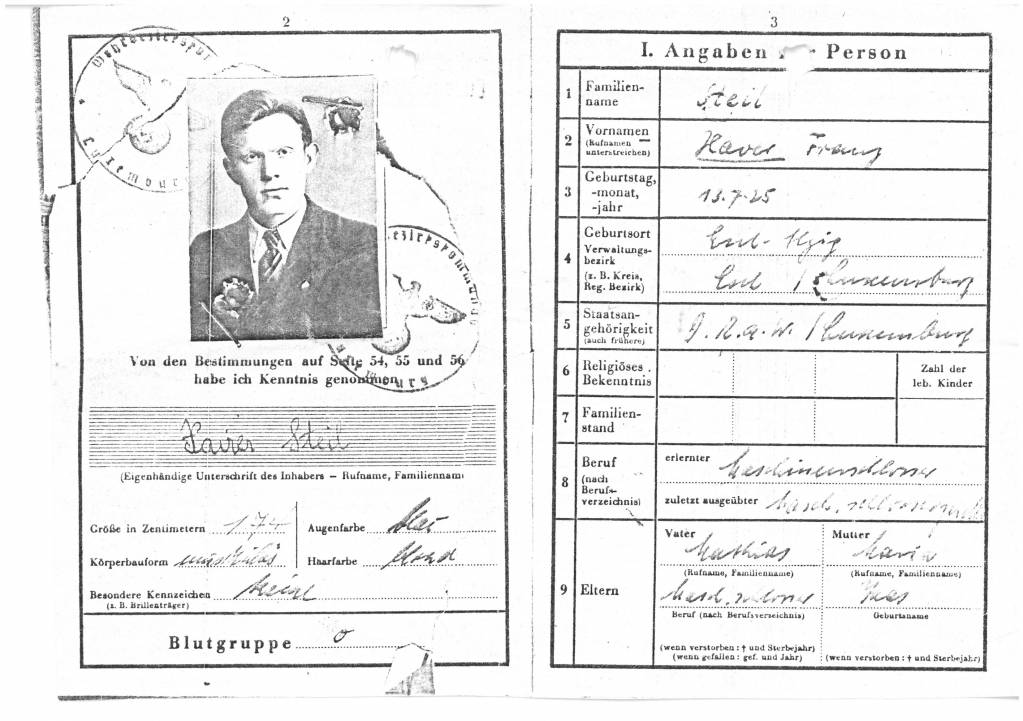 2
Von den Bestimmungen auf Seite 54, 55 und 56
habe ich Kenntnis genommen
Xaver Steil
(Eigenhändige Unterschrift des Inhabers – Rufname, Familienname
Größe in Zentimetern 174 Augenfarbe blau
Körperbauform muskulös Haarfarbe blond
Besondere Kennzeichen keine
(z. B. Brillenträger)
Blutgruppe 0
3
I. Angaben Person
1 Familien-
name Steil
2 Vornamen
(Rufnamen
unterstreichen) Xaver Franz
3 Geburtstag,
-monat,
-jahr 13.7.25
4 Geburtsort
Verwaltungs-
bezirk
(z. B. Kreis,
Reg. Bezirk) Esch-
Esch / Luxemburg
5 Staatsan-
gehörigkeit
(auch frühere) D. R. a. W. / Luxemburg
6 Religiöses
Bekenntnis
Zahl der
leb. Kinder
7 Familien-
stand
8 Beruf
(nach
Berufs-
verzeichnis)
erlernter Maschinenschlosser
zuletzt ausgeübter Masch.
9 Eltern
Vater Mutter
Mathias Maria
(Rufname, Familienname) (Rufname, Familienname)
Masch. schlosser
Beruf (nach Berufsverzeichnis) Geburtsname
(wenn verstorben: † und Sterbejahr)
(wenn gefallen: gef. und Jahr) (wenn verstorben: † und Sterbejahr)